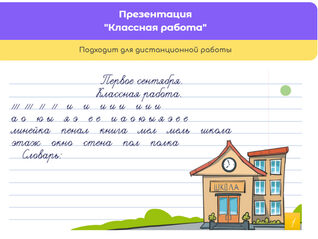 Презентация
"Классная работа"
Подходит для дистанционной работы
Первое сентября.
Классная работа.
и и и и и и и и
а о ю ы я э е е и а о ю ы я э е е
линейка пенал книга мел мель школа
этаж окно стена пол полка
Словарь:
ШКОЛА
1